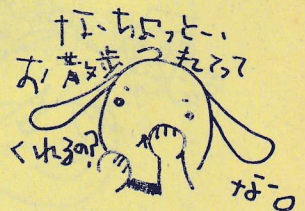 なーちょっとー、
お散歩つれてって
くれるの?
なー。